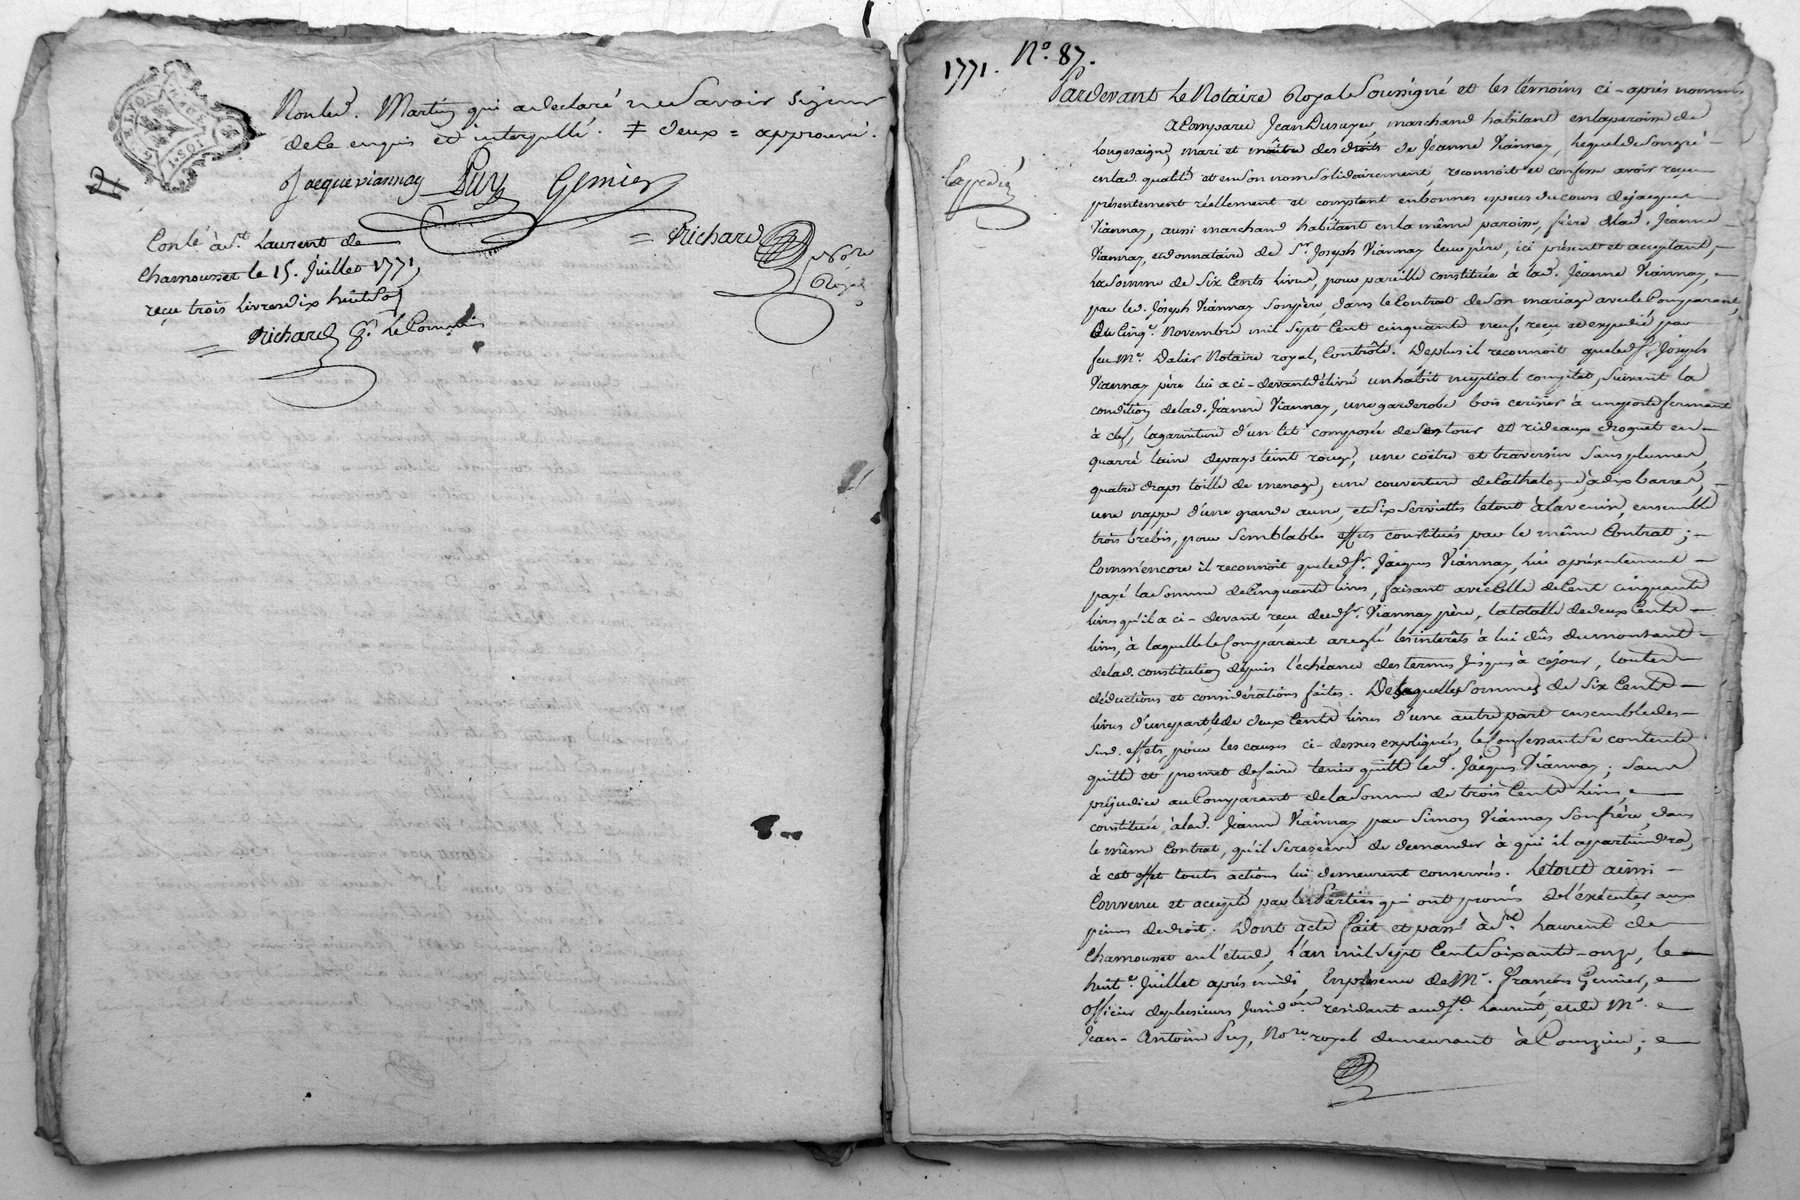 Non led. Martin qui a declaré ne savoir signer
de ce enquis et interpellé. ≠ deux = approuvé.
J acque viannay Puy Genier
Conlé à St. Laurent de
Chamousset le 15. Juillet 1771,
reçu trois livres dix huit sols
Richard
Nore
Royal
Richard
1771. No. 87.
Pardevant Le Notaire Royal Soussigné et les témoins ci-après nommés
a Comparu Jean marchand habitant en la paroisse de
Longesaigne, mari et maître des droits de Jeanne Viannay, Lequel de son gré
Expédié
en lad. qualité et en son nom solidairement, reconnoit et confesse avoir reçu
présentement réellement et comptant en bonnes especes du cours de jacques
Viannay, aussi marchand habitant en la même paroisse, frère de lad. Jeanne
Viannay, et donnataire de Sr. Joseph Viannay leur père, ici présent et acceptant,
La somme de Six Cents livres, pour pareille constituée à lad. Jeanne Viannay,
par led. Joseph Viannay son père, dans le Contrat de son mariage avec le Comparant,
du Cinqe. Novembre mil sept Cent cinquante neuf, reçu et expédié par
feu Me. Dalier Notaire royal, Contrôlé. De plus il reconnoit que led. Sr. Joseph
Viannay père lui a ci-devant délivré un habit nuptial complet, suivant la
condition de lad. Jeanne Viannay, une garderobe bois cerisier à une porte fermant
à clef, la garniture d'un lit composée de son tour et rideaux droguet en
quarré laine de pays teint rouge, une coëtre et traversin sans plumes,
quatre draps toille de menage, une couverture de Cathalogne, à dix barres,
une nappe d'une grande aune, et six serviettes le tout à la venise, ensemble
trois brebis, pour semblables effets constitués par le même Contrat;
Comm'encore il reconnoit que led. Sr. Jacques Viannay, lui a présentement
payé la somme de Cinquante livres, faisant avec celle de Cent cinquante
livres qu'il a ci-devant reçu dud. Sr. Viannay père, la totalle de deux Cents
livres, à laquelle le Comparant a reglé les interêts à lui dûs du montant
de lad. constitution depuis l'échéance des termes jusques à ce jour, toutes
déductions et considérations faites. Desquelles sommes de Six Cents
livres d'une part, & de deux Cents livres d'une autre part ensemble des
sud. effets, pour les causes ci-dessus expliquées, le Confessant se contente
quitte et promet de faire tenir quitte led. Jacques Viannay; sans
préjudice au Comparant de la somme de trois Cents livres,
constituée à lad. Jeanne Viannay par Simon Viannay son frère, dans
le même Contrat, qu'il se reserve de demander à qui il appartiendra,
à cet effet toutes actions lui demeurent conservées. Le tout ainsi
Convenu et accepté par les Parties qui ont promis de l'éxécuter aux
peines de droit. Dont acte fait et passé à St. Laurent de
Chamousset en l'étude, l'an mil sept Cent Soixante-onze, le
huite. Juillet après midi, En présence de Me. François Genier,
Officier de plusieurs Juridons. residant aud. St. Laurent, et de Me.
Jean-Antoine Puy, Nore. royal demeurant à Courzieu;